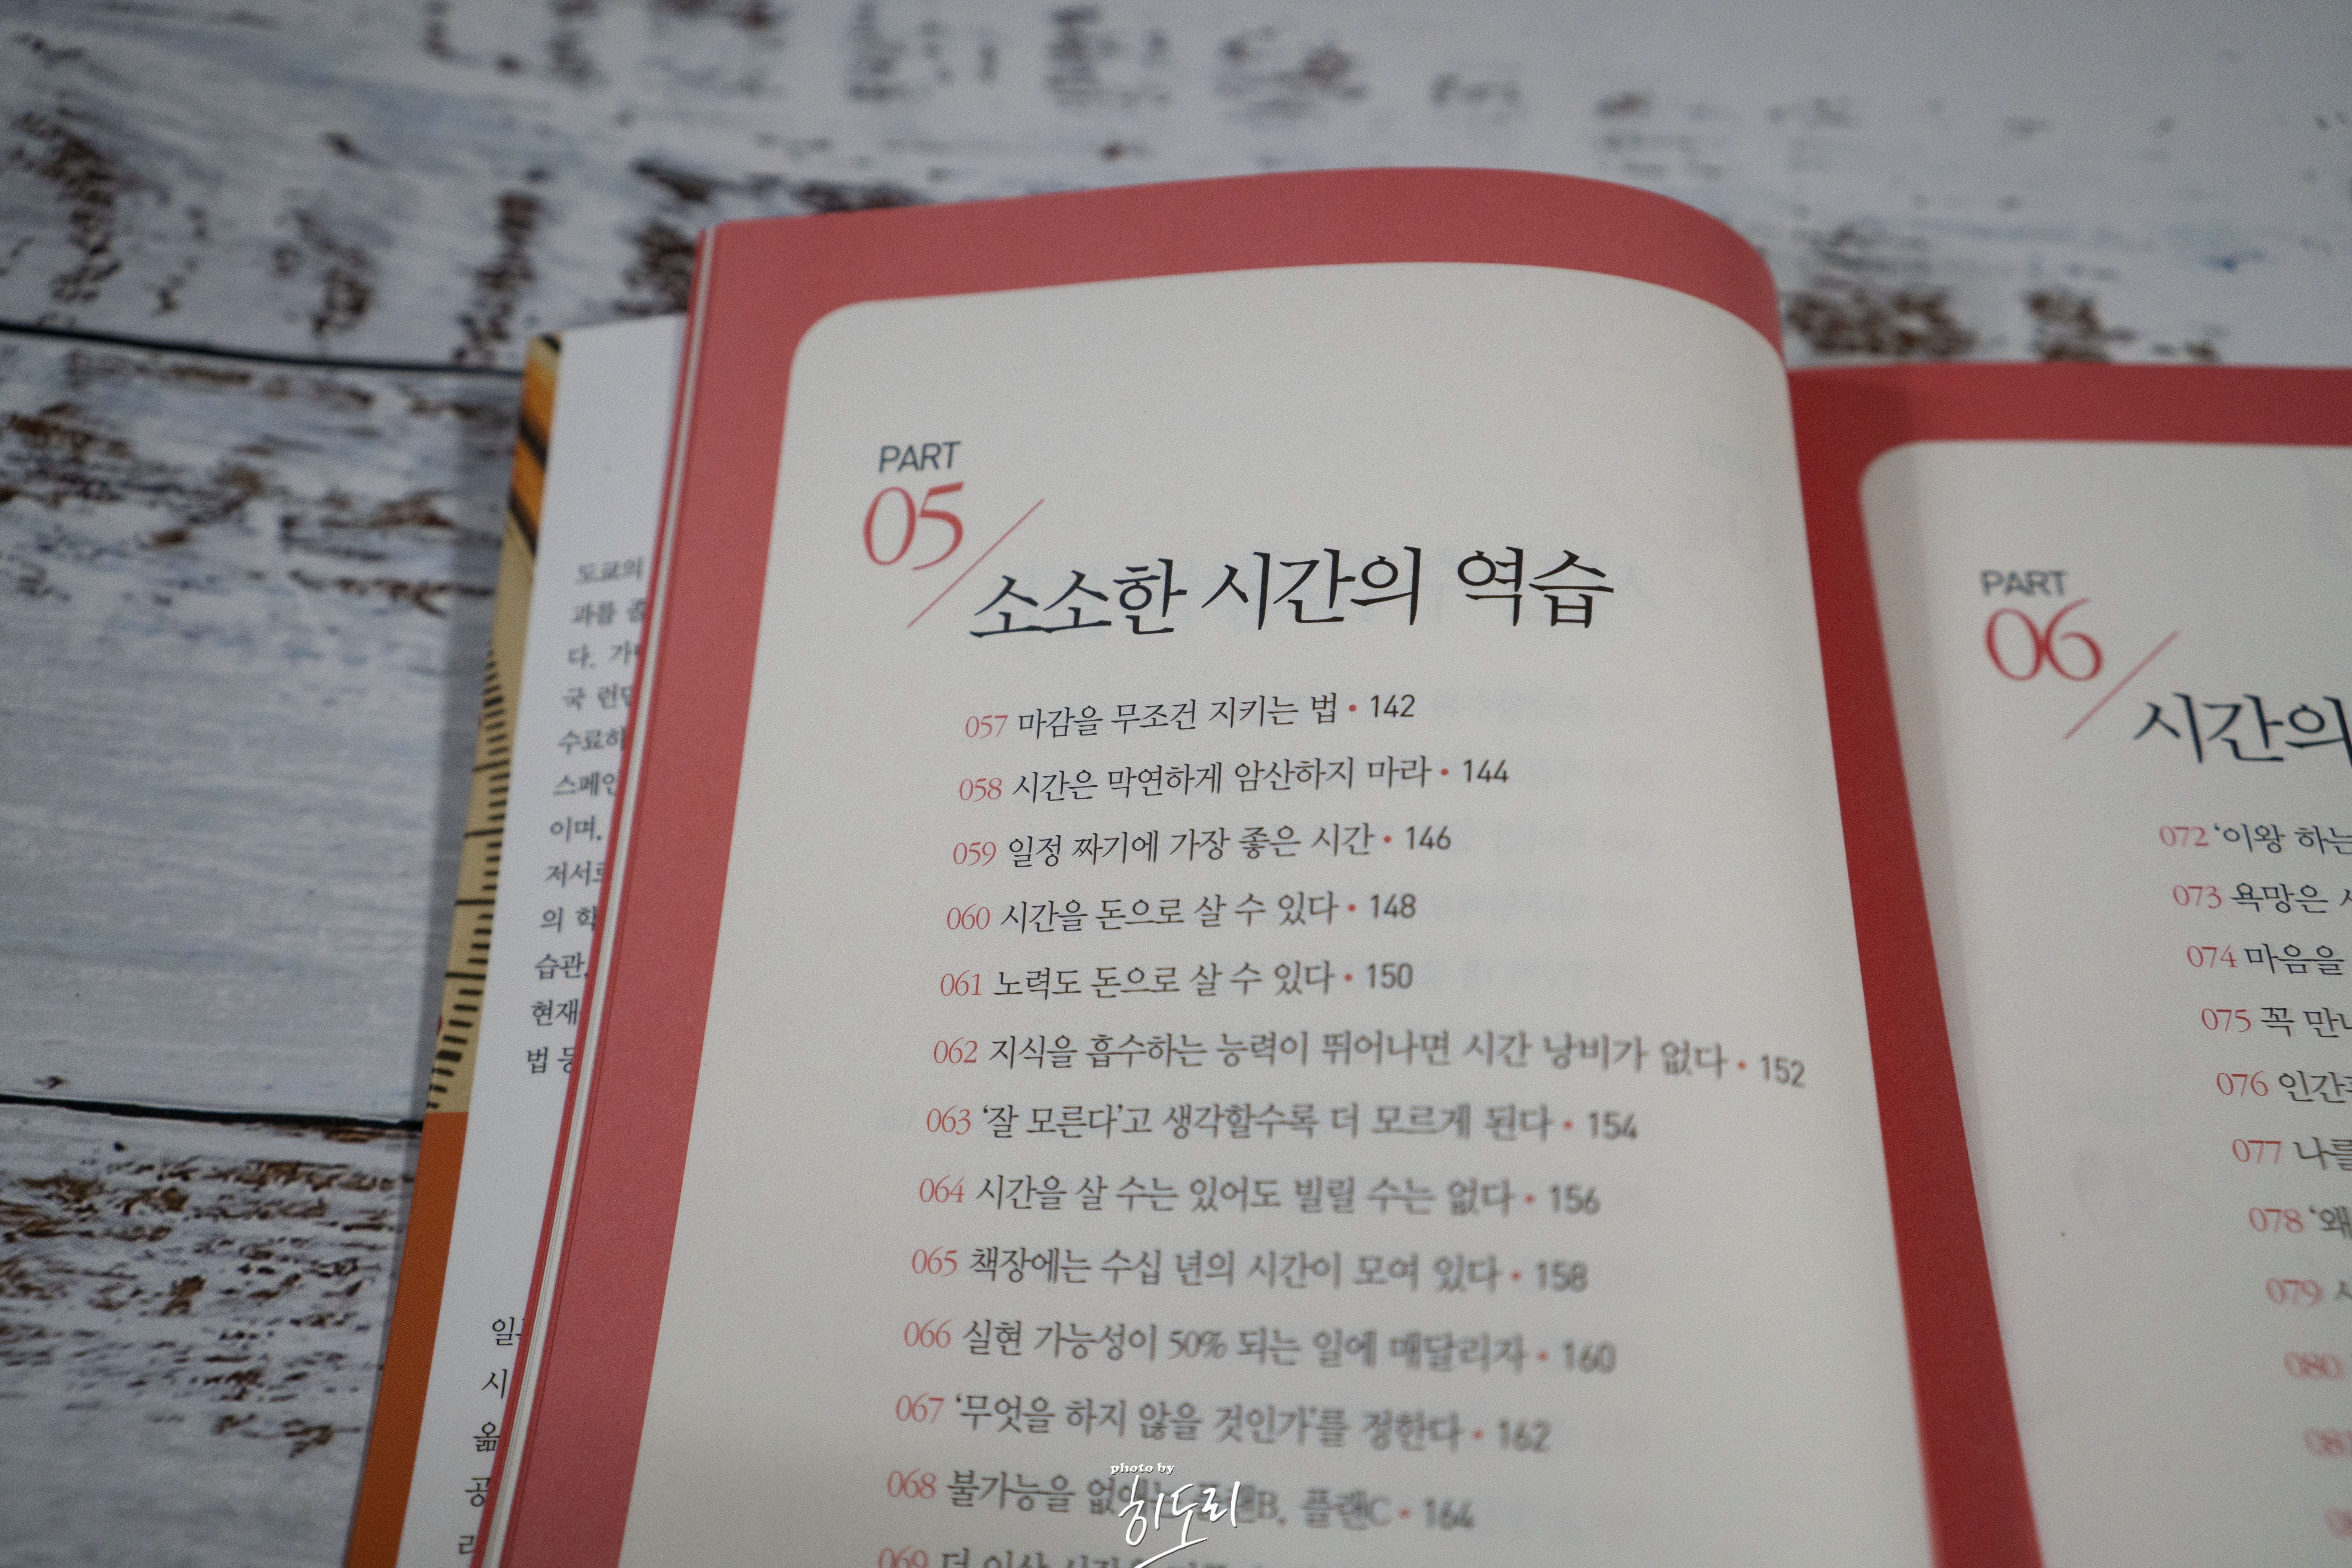 도쿄의
과를 졸
다.
국 런던
수료하
스페인
이며,
저서로
의 학
습관,
현재
법 등
시
옮
공
PART
05
소소한 시간의 역습
057 마감을 무조건 지키는 법 • 142
058 시간은 막연하게 암산하지 마라 • 144
059 일정 짜기에 가장 좋은 시간 • 146
060 시간을 돈으로 살 수 있다 • 148
061 노력도 돈으로 살 수 있다 • 150
062 지식을 흡수하는 능력이 뛰어나면 시간 낭비가 없다 • 152
063 ‘잘 모른다’고 생각할수록 더 모르게 된다 • 154
064 시간을 살 수는 있어도 빌릴 수는 없다 • 156
065 책장에는 수십 년의 시간이 모여 있다 • 158
066 실현 가능성이 50% 되는 일에 매달리자 • 160
067 ‘무엇을 하지 않을 것인가’를 정한다 • 162
068 불가능을 없애는 플랜B, 플랜C • 164
069 더 이상
PART
06
시간의
072 ‘이왕 하는
073 욕망은
074 마음을
075 꼭 만나
076 인간
077 나를
078 ‘왜
079
080
photo by
히도리